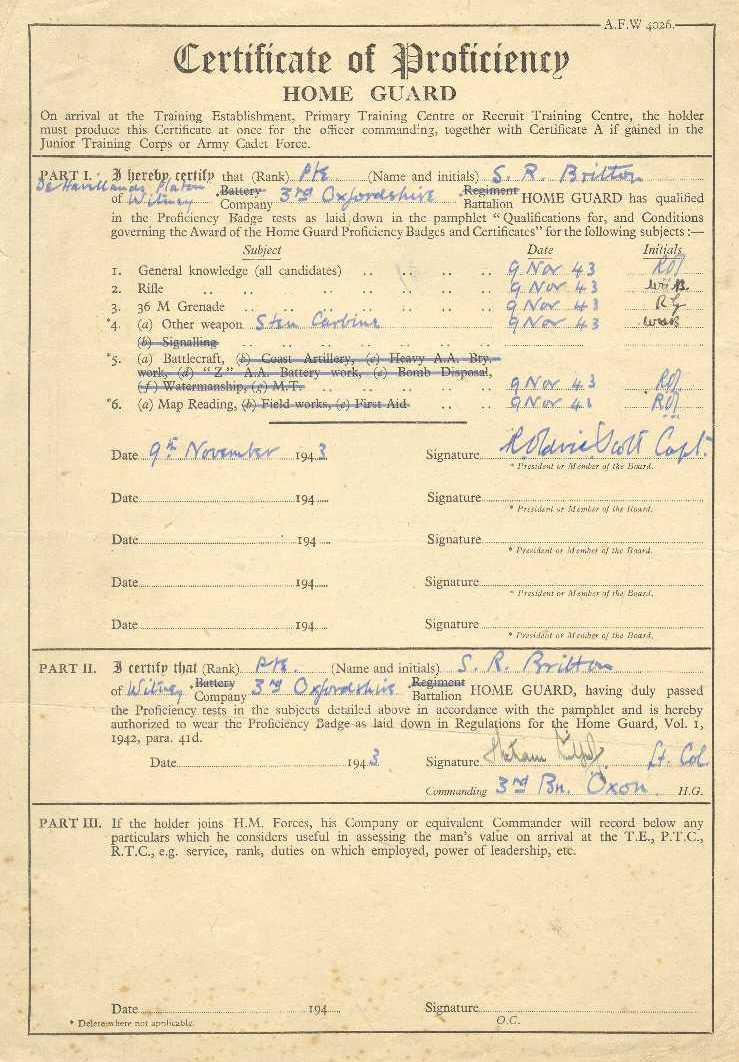 A.F.W 4026.
Certificate of Proficiency
HOME GUARD
On arrival at the Training Establishment, Primary Training Centre or Recruit Training Centre, the holder
must produce this Certificate at once for the officer commanding, together with Certificate A if gained in the
Junior Training Corps or Army Cadet Force.
PART I. I hereby certify that (Rank) Pte (Name and initials) S. R. Britton
De Havillands Platon
of Witney *Battery Company 3rd Oxfordshire *Regiment Battalion HOME GUARD has qualified
in the Proficiency Badge tests as laid down in the pamphlet "Qualifications for, and Conditions
governing the Award of the Home Guard Proficiency Badges and Certificates" for the following subjects :—
Subject Date Initials
1. General knowledge (all candidates) 9 Nov 43
2. Rifle 9 Nov 43
3. 36 M Grenade 9 Nov 43
*4. (a) Other weapon Sten Carbine 9 Nov 43
(b) Signalling
*5. (a) Battlecraft, (b) Coast Artillery, (c) Heavy A.A. Bty.
work, (d) "Z" A.A. Battery work, (e) Bomb Disposal,
(f) Watermanship, (g) M.T. 9 Nov 43
*6. (a) Map Reading, (b) Field works, (c) First Aid 9 Nov 43
Date 9th November 1943 Signature Scott Capt.
* President or Member of the Board.
Date 194 Signature
* President or Member of the Board.
Date 194 Signature
* President or Member of the Board.
Date 194 Signature
* President or Member of the Board.
Date 194 Signature
* President or Member of the Board.
PART II. I certify that (Rank) Pte. (Name and initials) S. R. Britton
of Witney *Battery Company 3rd Oxfordshire *Regiment Battalion HOME GUARD, having duly passed
the Proficiency tests in the subjects detailed above in accordance with the pamphlet and is hereby
authorized to wear the Proficiency Badge as laid down in Regulations for the Home Guard, Vol. 1,
1942, para. 41d.
Date 1943 Signature Lt. Col.
Commanding 3rd Bn. Oxon. H.G.
PART III. If the holder joins H.M. Forces, his Company or equivalent Commander will record below any
particulars which he considers useful in assessing the man's value on arrival at the T.E., P.T.C.,
R.T.C., e.g. service, rank, duties on which employed, power of leadership, etc.
Date 194 Signature
* Delete where not applicable. O.C.